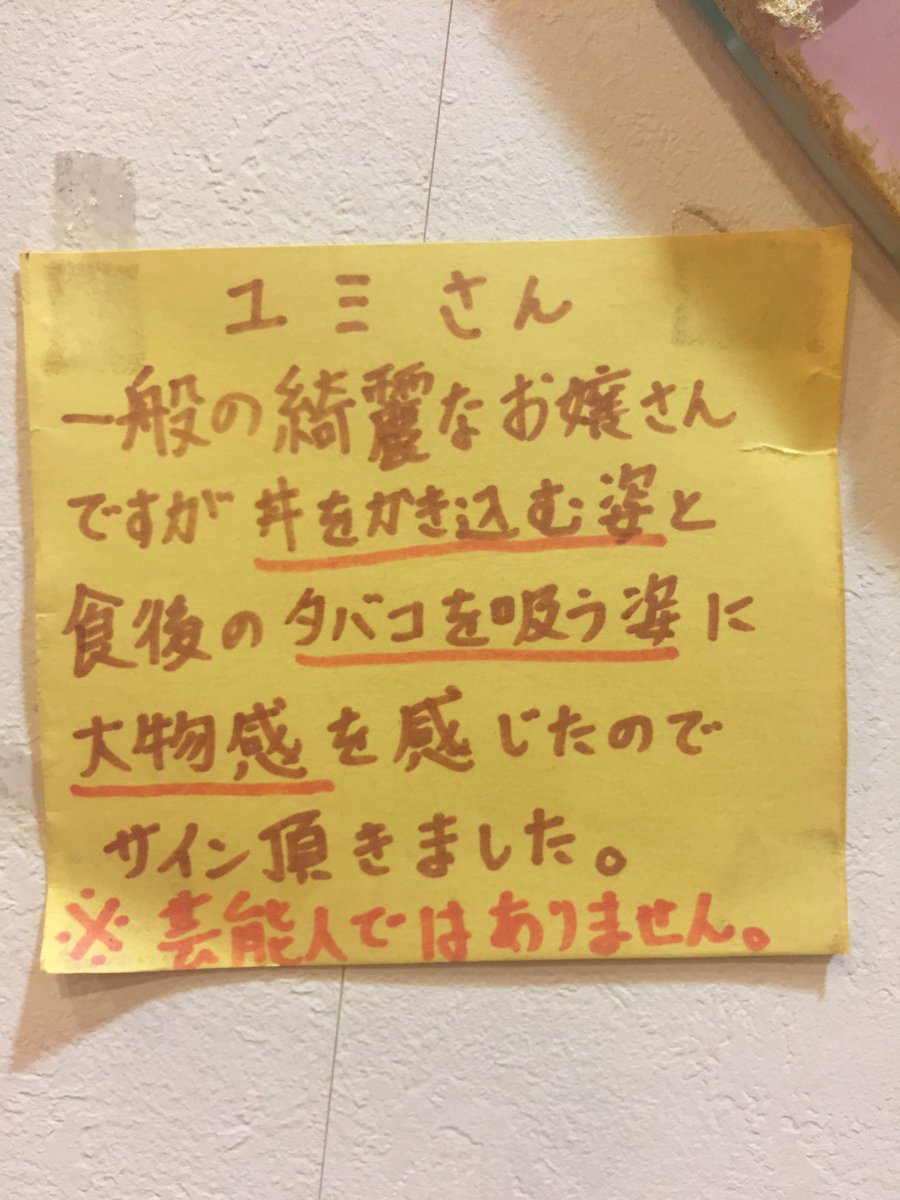 ユミさん
一般の綺麗なお嬢さん
ですが丼をかき込む姿と
食後のタバコを吸う姿に
大物感を感じたので
サイン頂きました。
※芸能人ではありません。